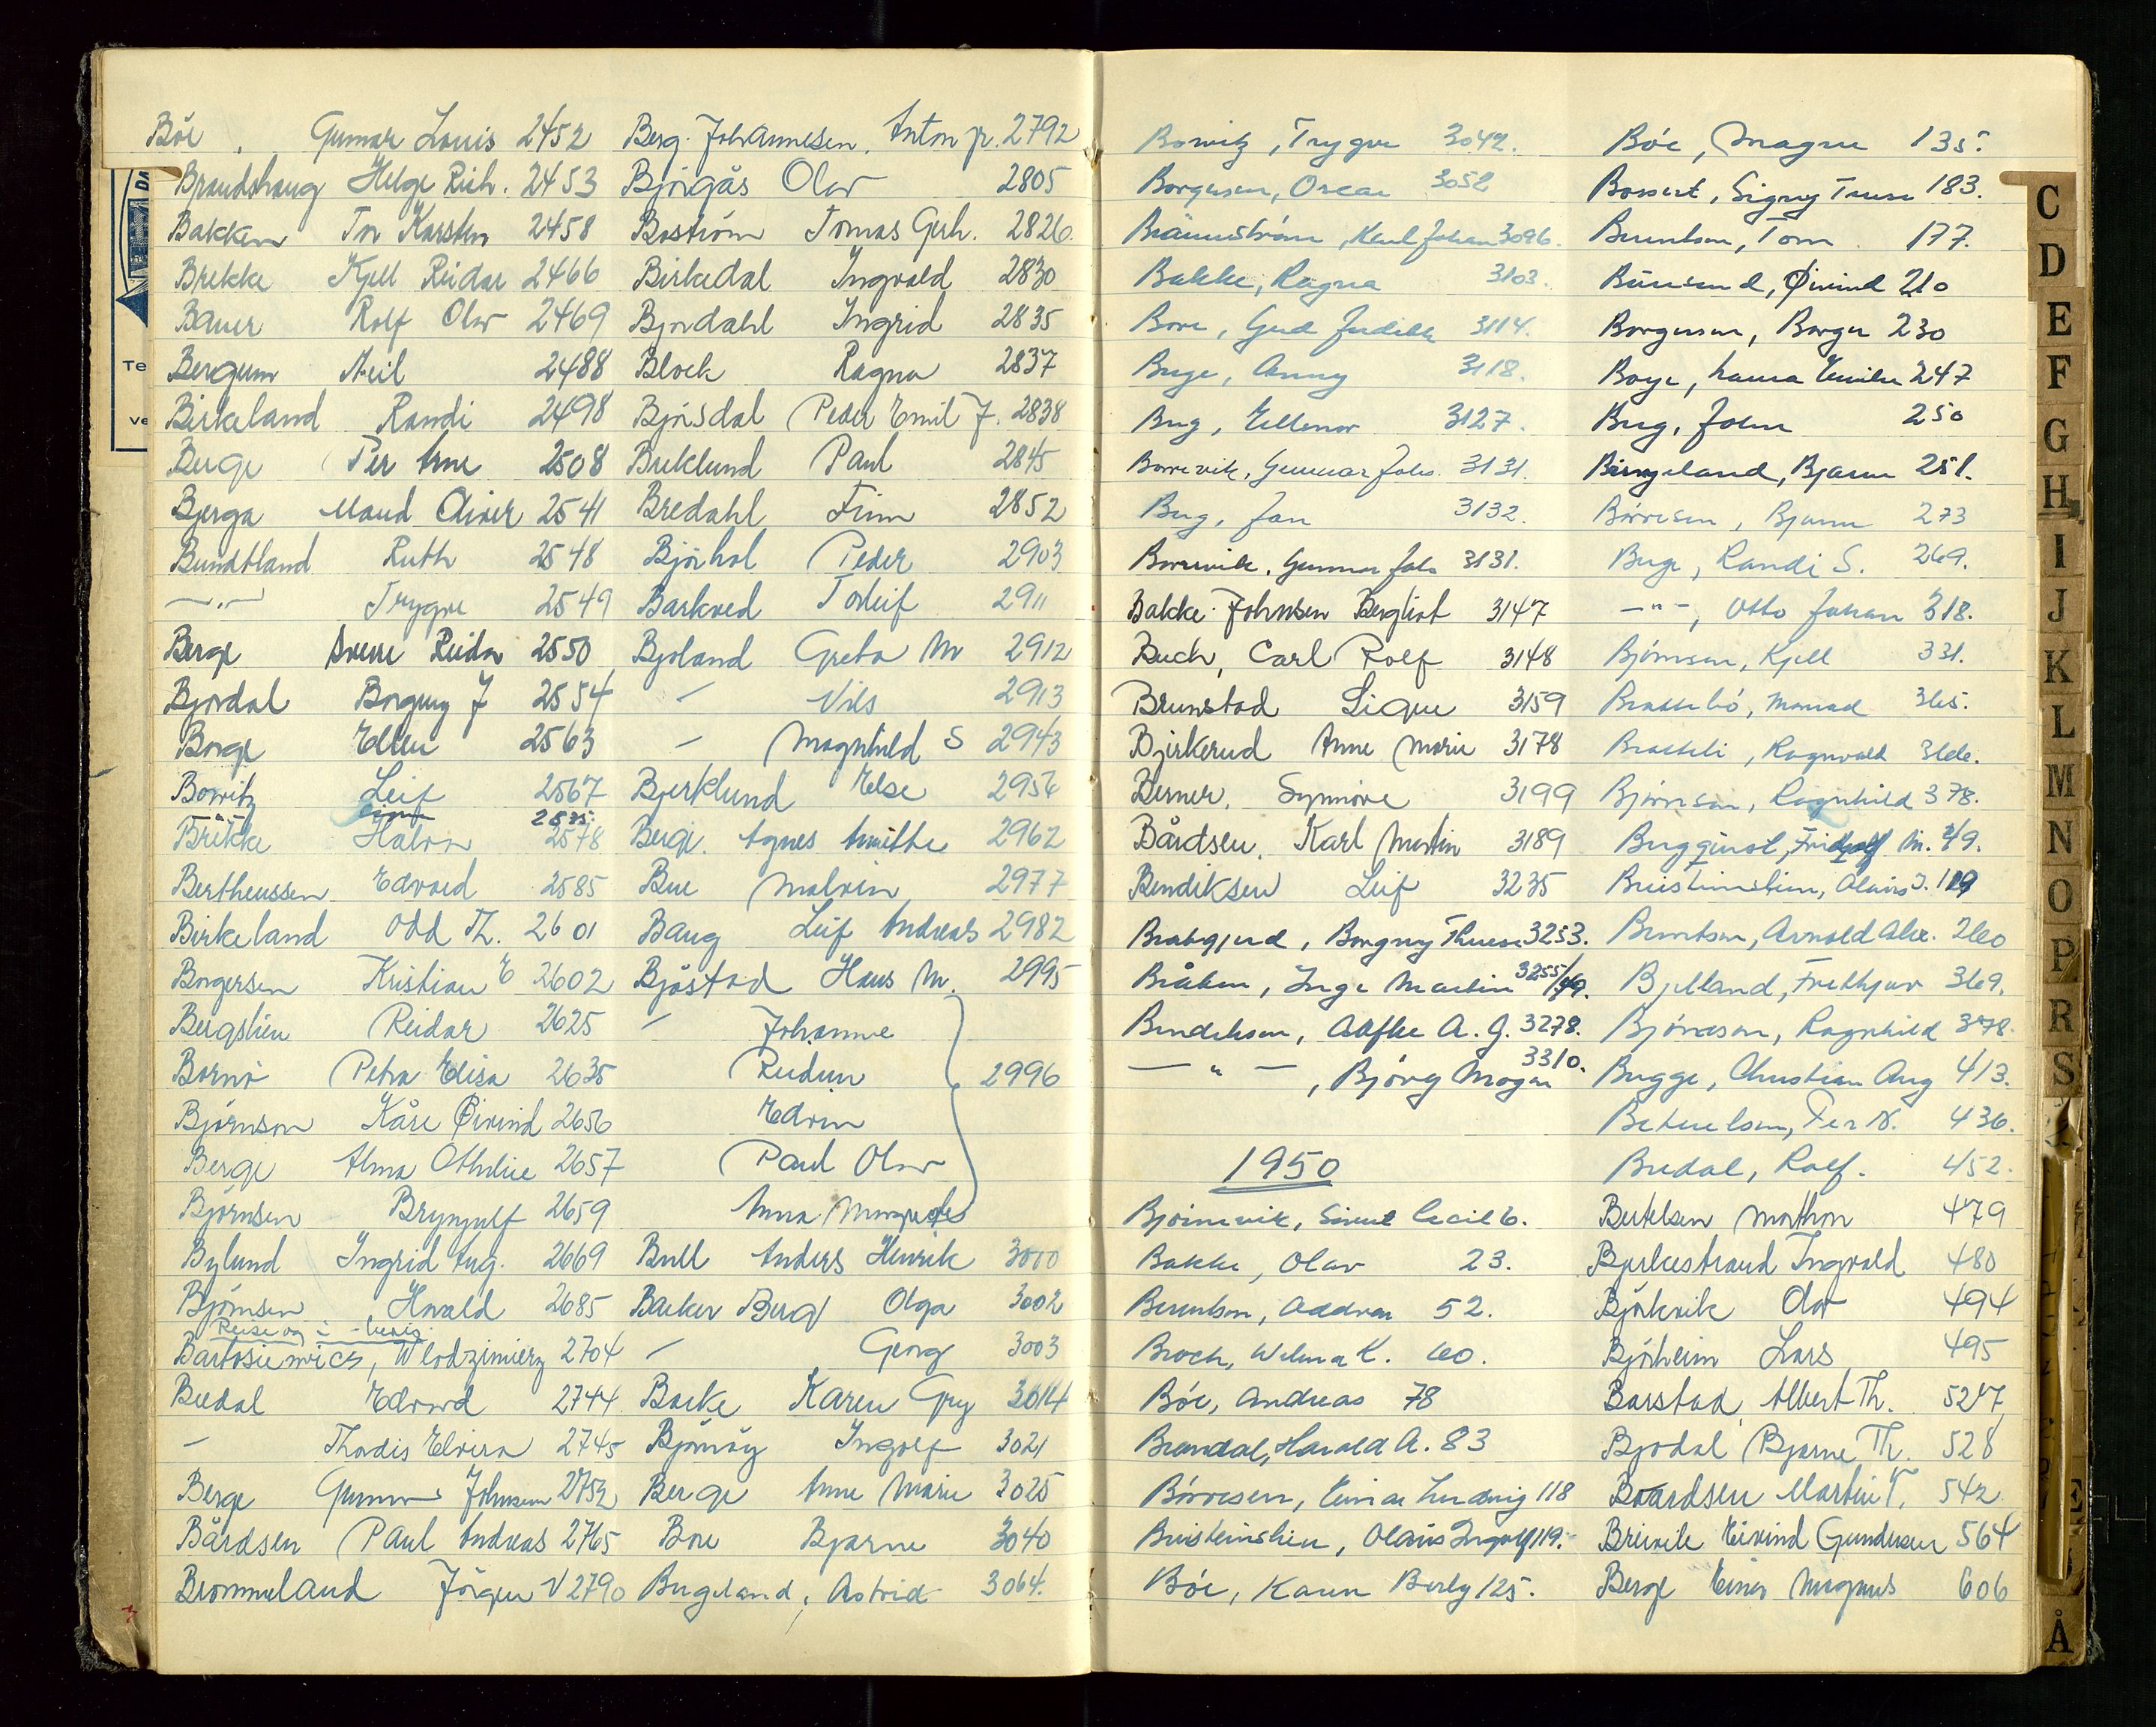 Böe, Gunnar Louis 2452
Brandshaug Helge Rich. 2453
Bakken Tor Karsten 2458
Brekke Kjell Reidar 2466
Bauer Rolf Olav 2469
Bergum Neil 2488
Birkeland Randi 2498
Berge Per Arne 2508
Bjerga Maud Oliver 2541
Bundtland Ruth 2548
—"— Trygve 2549
Berge Sverre Reidar 2550
Bjordal Borgny J 2554
Borge Ellen 2563
Bowitz Leif 2567
2575
Brekke Halvor 2578
Bertheussen Edvard 2585
Birkeland Odd Th. 2601
Borgersen Kristian E 2602
Bergslien Reidar 2625
Bornö Petra Elisa 2635
Björnson Kåre Öivind 2656
Berge Alma Othelie 2657
Björnsen Brynjulf 2659
Bylund Ingrid Aug. 2669
Björnsen Harald 2685
Reise og - bevis
Bartosiewicz, Wlodzimierz 2704
Bredal Edvard 2744
— Thordis Elvira 2745
Berge Gunnar Johnsen 2752
Bårdsen Paul Andreas 2765
Brommeland Jörgen V 2790
Berg-Johannesen, Anton jr. 2792
Björgås Olav 2805
Boström Tomas Gerh. 2826
Birkedal Ingvald 2830
Bjordahl Ingrid 2835
Block Ragna 2837
Björsdal Peder Emil J. 2838
Breklund Paul 2845
Bredahl Finn 2852
Björhol Peder 2903
Barkved Torleif 2911
Bjoland Greta M 2912
— Nils 2913
— Magnhild S 2943
Bjerklund Else 2956
Berge Agnes Amithe 2962
Bue Malvin 2977
Baug Leif Andreas 2982
Bjöstad Hans M. 2995
— Johanne
Reidun 2996
Edvin
Paul Olav
Anna Margrethe
Bull Anders Henrik 3000
Backer Berg Olga 3002
— Georg 3003
Barke Karen Gry 3014
Björnöy Ingolf 3021
Berge Anne Marie 3025
Bore Bjarne 3040
Bugeland, Astrid 3064.
Bowitz, Trygve 3042.
Borgersen, Oscar 3052
Brännström, Karl Johan 3096.
Bakke, Ragna 3103.
Bore, Gud Judith 3114.
Berge, Anny 3118.
Berg, Ellenor 3127.
Borrevik, Gunnar Johs. 3131.
Berg, Jan 3132.
Borrevik, Gunnar Johs 3131.
Bakke-Johnsen Bergliot 3147
Buch, Carl Rolf 3148
Brunstad Signe 3159
Bjirkerud Anne Marie 3178
Berner, Synnöve 3199
Bårdsen, Karl Martin 3189
Bendiksen Leif 3235
Brabgjerd, Borgny Therese 3253.
Bråten, Inge Martin 3255/49.
Bendiksen, A. G. 3278.
—"—, Björg Mogan 3310.
1950
Björnevik, Sivert Cecil 6.
Bakke, Olav 23.
Berentsen, Addvar 52.
Broch, Wilma K. 60.
Böe, Andreas 78
Brandal, Harald A. 83
Börresen, Einar Ludvig 118
Breisteinslien, Olaus Ingolf 119.
Böe, Karen Berly 125.
Böe, Magne 135.
Bossert, Signy Taure 183.
Berentsen, Tom 177.
Buresund, Øivind 210
Borgersen, Borger 230
Boye, Laura Emilie 247
Berg, John 250
Bringeland, Bjarne 251.
Börresen, Bjarne 273
Berge, Randi S. 269.
—"—, Otto Johan 318.
Björnsen, Kjell 331.
Brattebö, Monrad 365.
Bratteli, Ragnvald 366.
Björnson, Ragnhild 378.
Berggvist, Fridolf M. 49.
Breisteinslien, Olaus I. 119
Berentsen, Arnold Alex. 260
Bjelland, Fredthjov 369.
Björnson, Ragnhild 378.
Bugge, Christian Aug 413.
Betuelsen, Per N. 436.
Bredal, Rolf. 452.
Bertelsen Marthon 479
Bjerkestrand Ingvald 480
Björkvik Olav 494
Björheim Lars 495
Barstad Albert Th. 527
Bjodal Bjarne Th. 528
Baardsen Martin T. 542
Breivik Eivind Gundersen 564
Berge Einar Magnus 606
C
D
E
F
G
H
I
J
K
L
M
N
O
P
R
S
Å